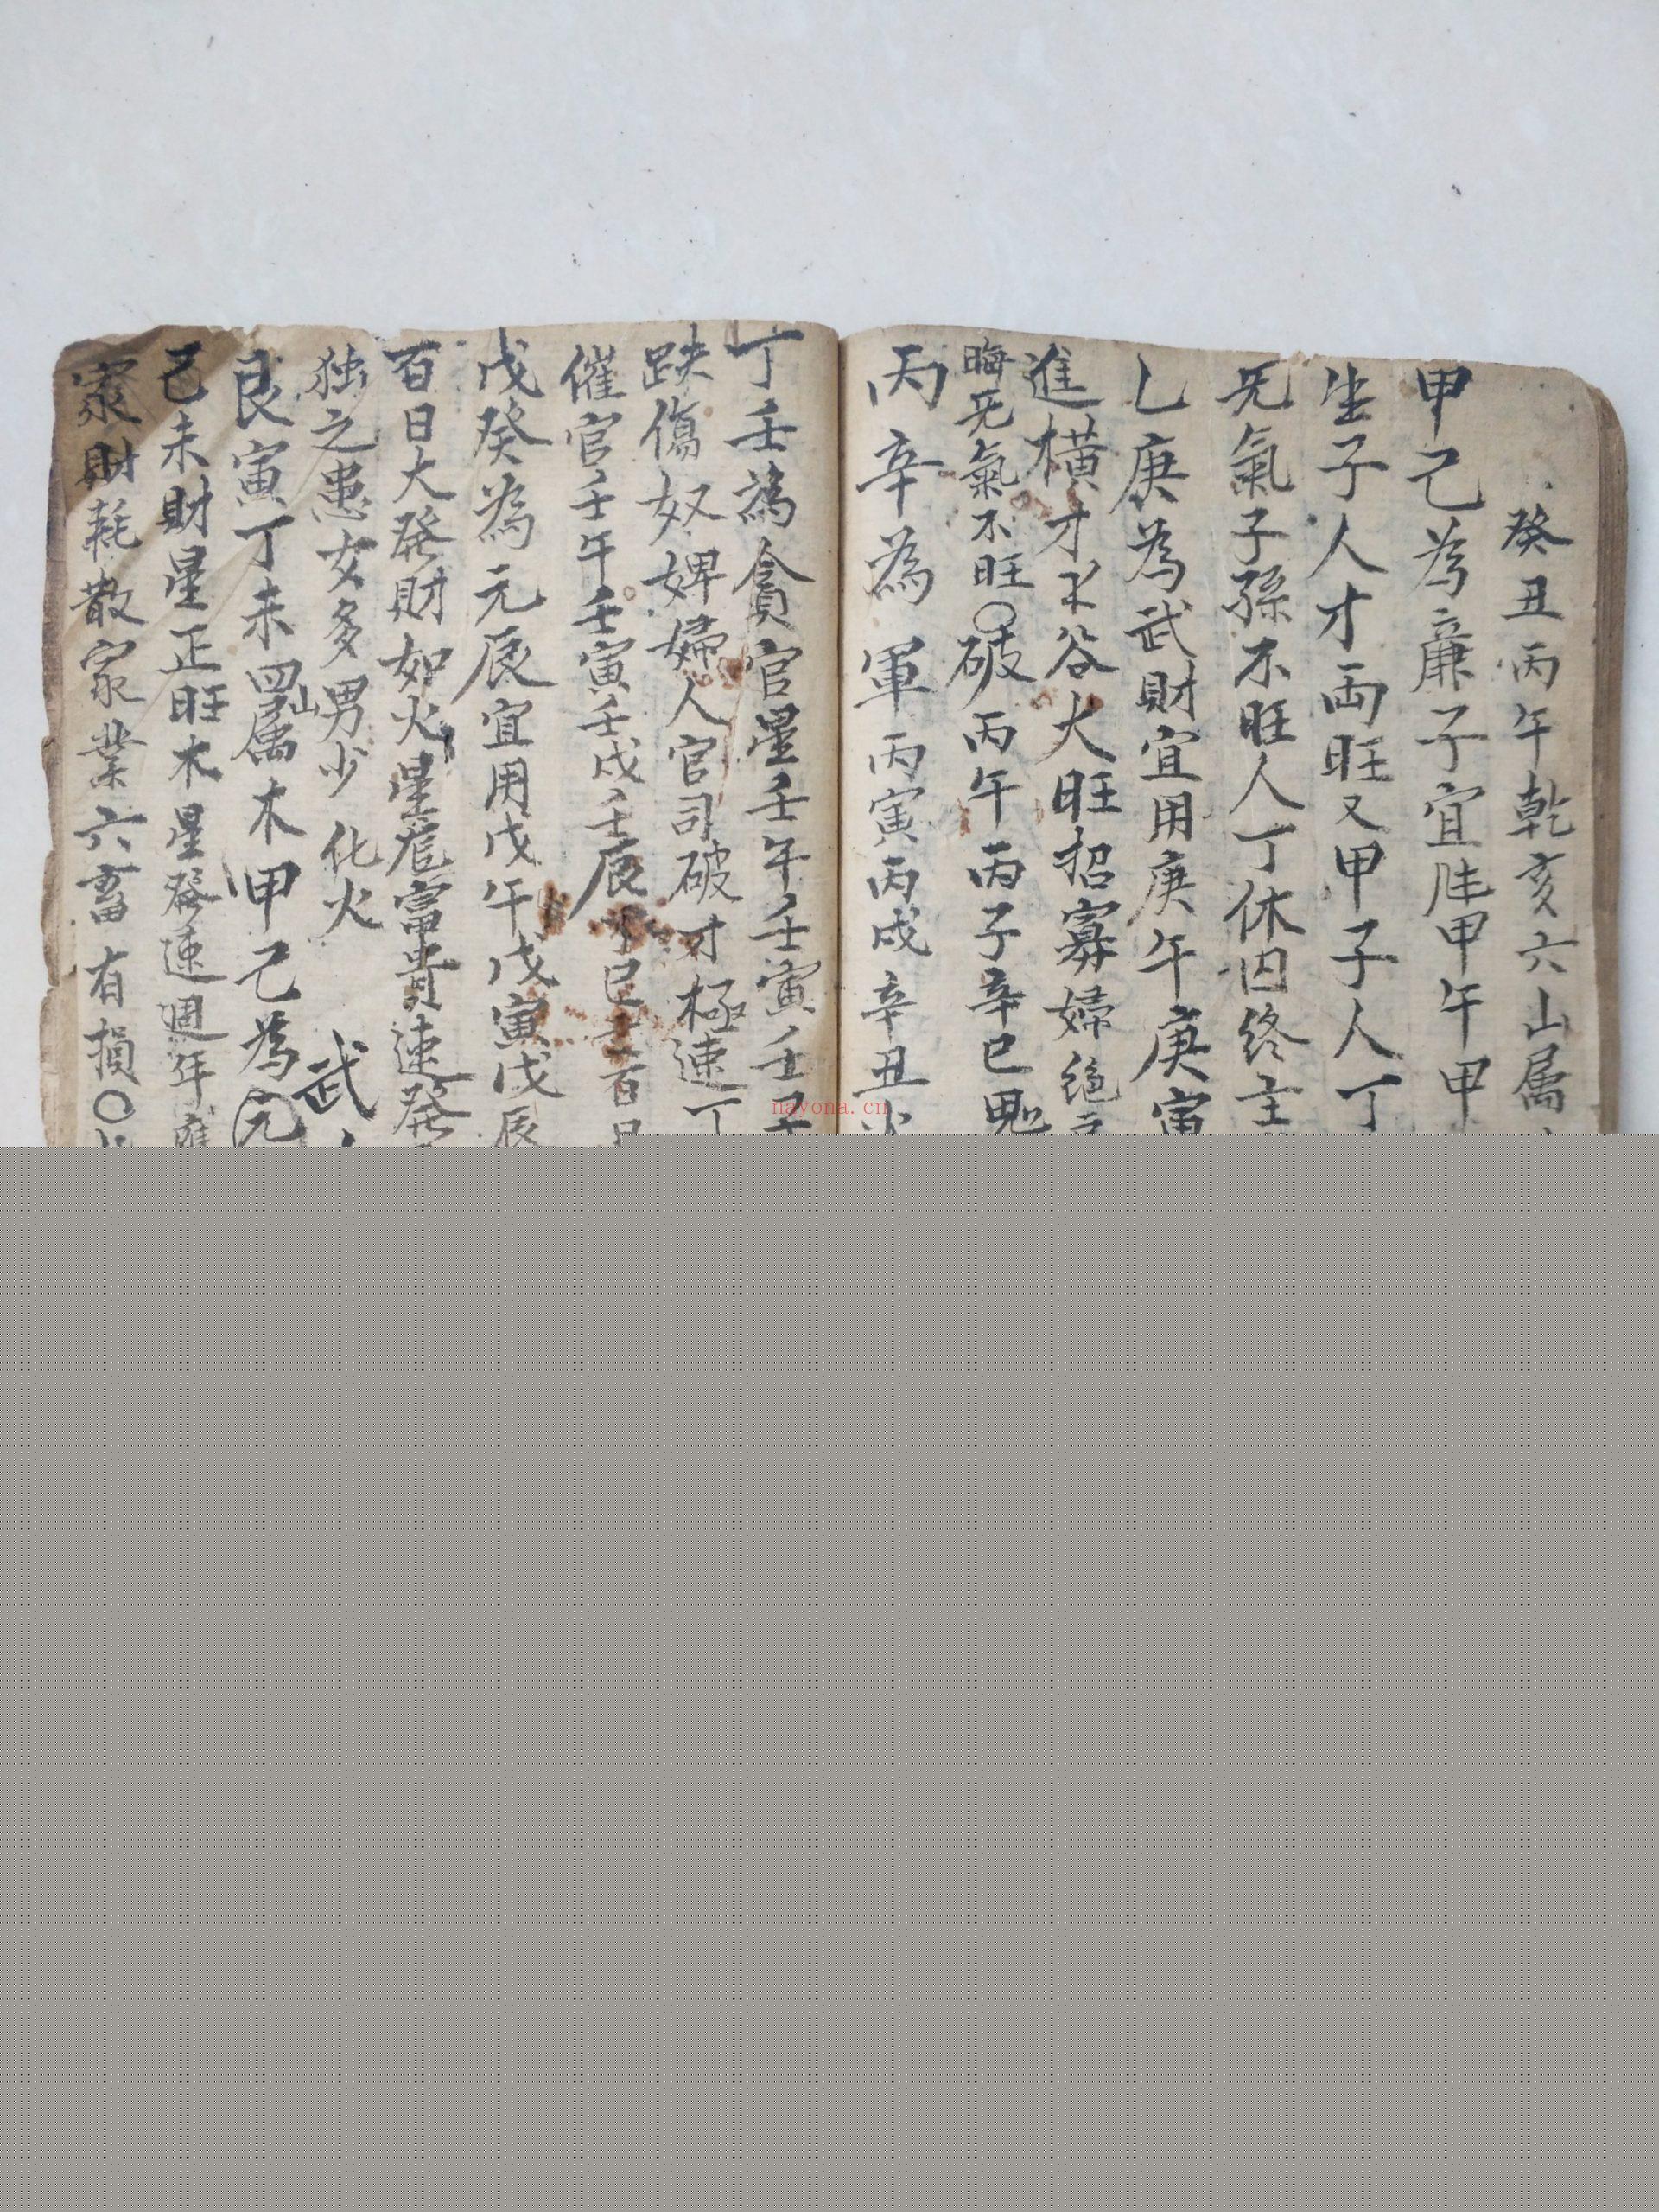 癸丑丙午乾亥六山属
甲己為廉子宜用甲午甲
生子人才両旺又甲子人丁
旡氣子孫不旺人丁休囚終主
乚庚為武財宜用庚午庚寅
進横才米谷大旺招寡婦絕
晦旡氣不旺〇破丙午丙子辛巳
丙辛為軍丙寅丙戌辛丑
丁壬為貪官星壬午壬寅壬子
跌傷奴婢婦人官司破才極速丁
催官壬午壬寅壬戌壬辰丁巳主百日
戊癸為元辰宜用戊午戊寅戊辰
百日大発財如火星危富貴速発
独之患女多男少化火 武
艮寅丁未四山属木甲己為元
己未財星正旺木星発速週年應
家財耗散家業六畜有損〇
nayona.cn